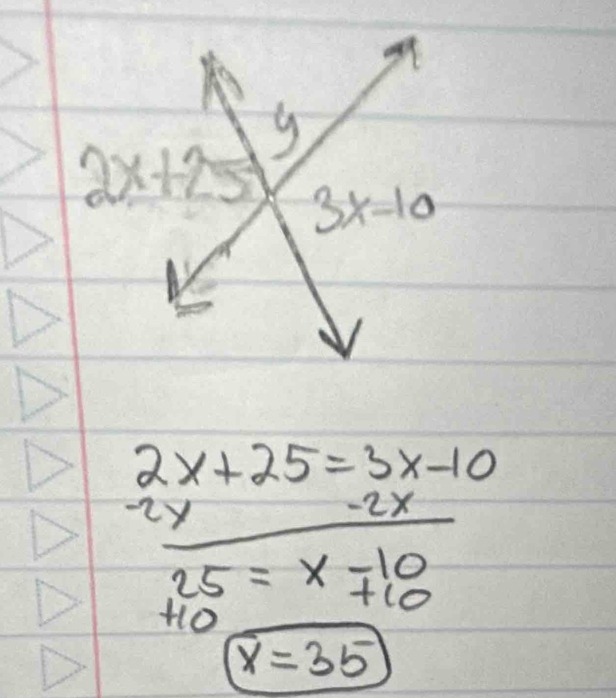 y
2x+25
3x-10
2x+25=3x-10
-2x -2x
25 = x -10
+10 +10
x=35